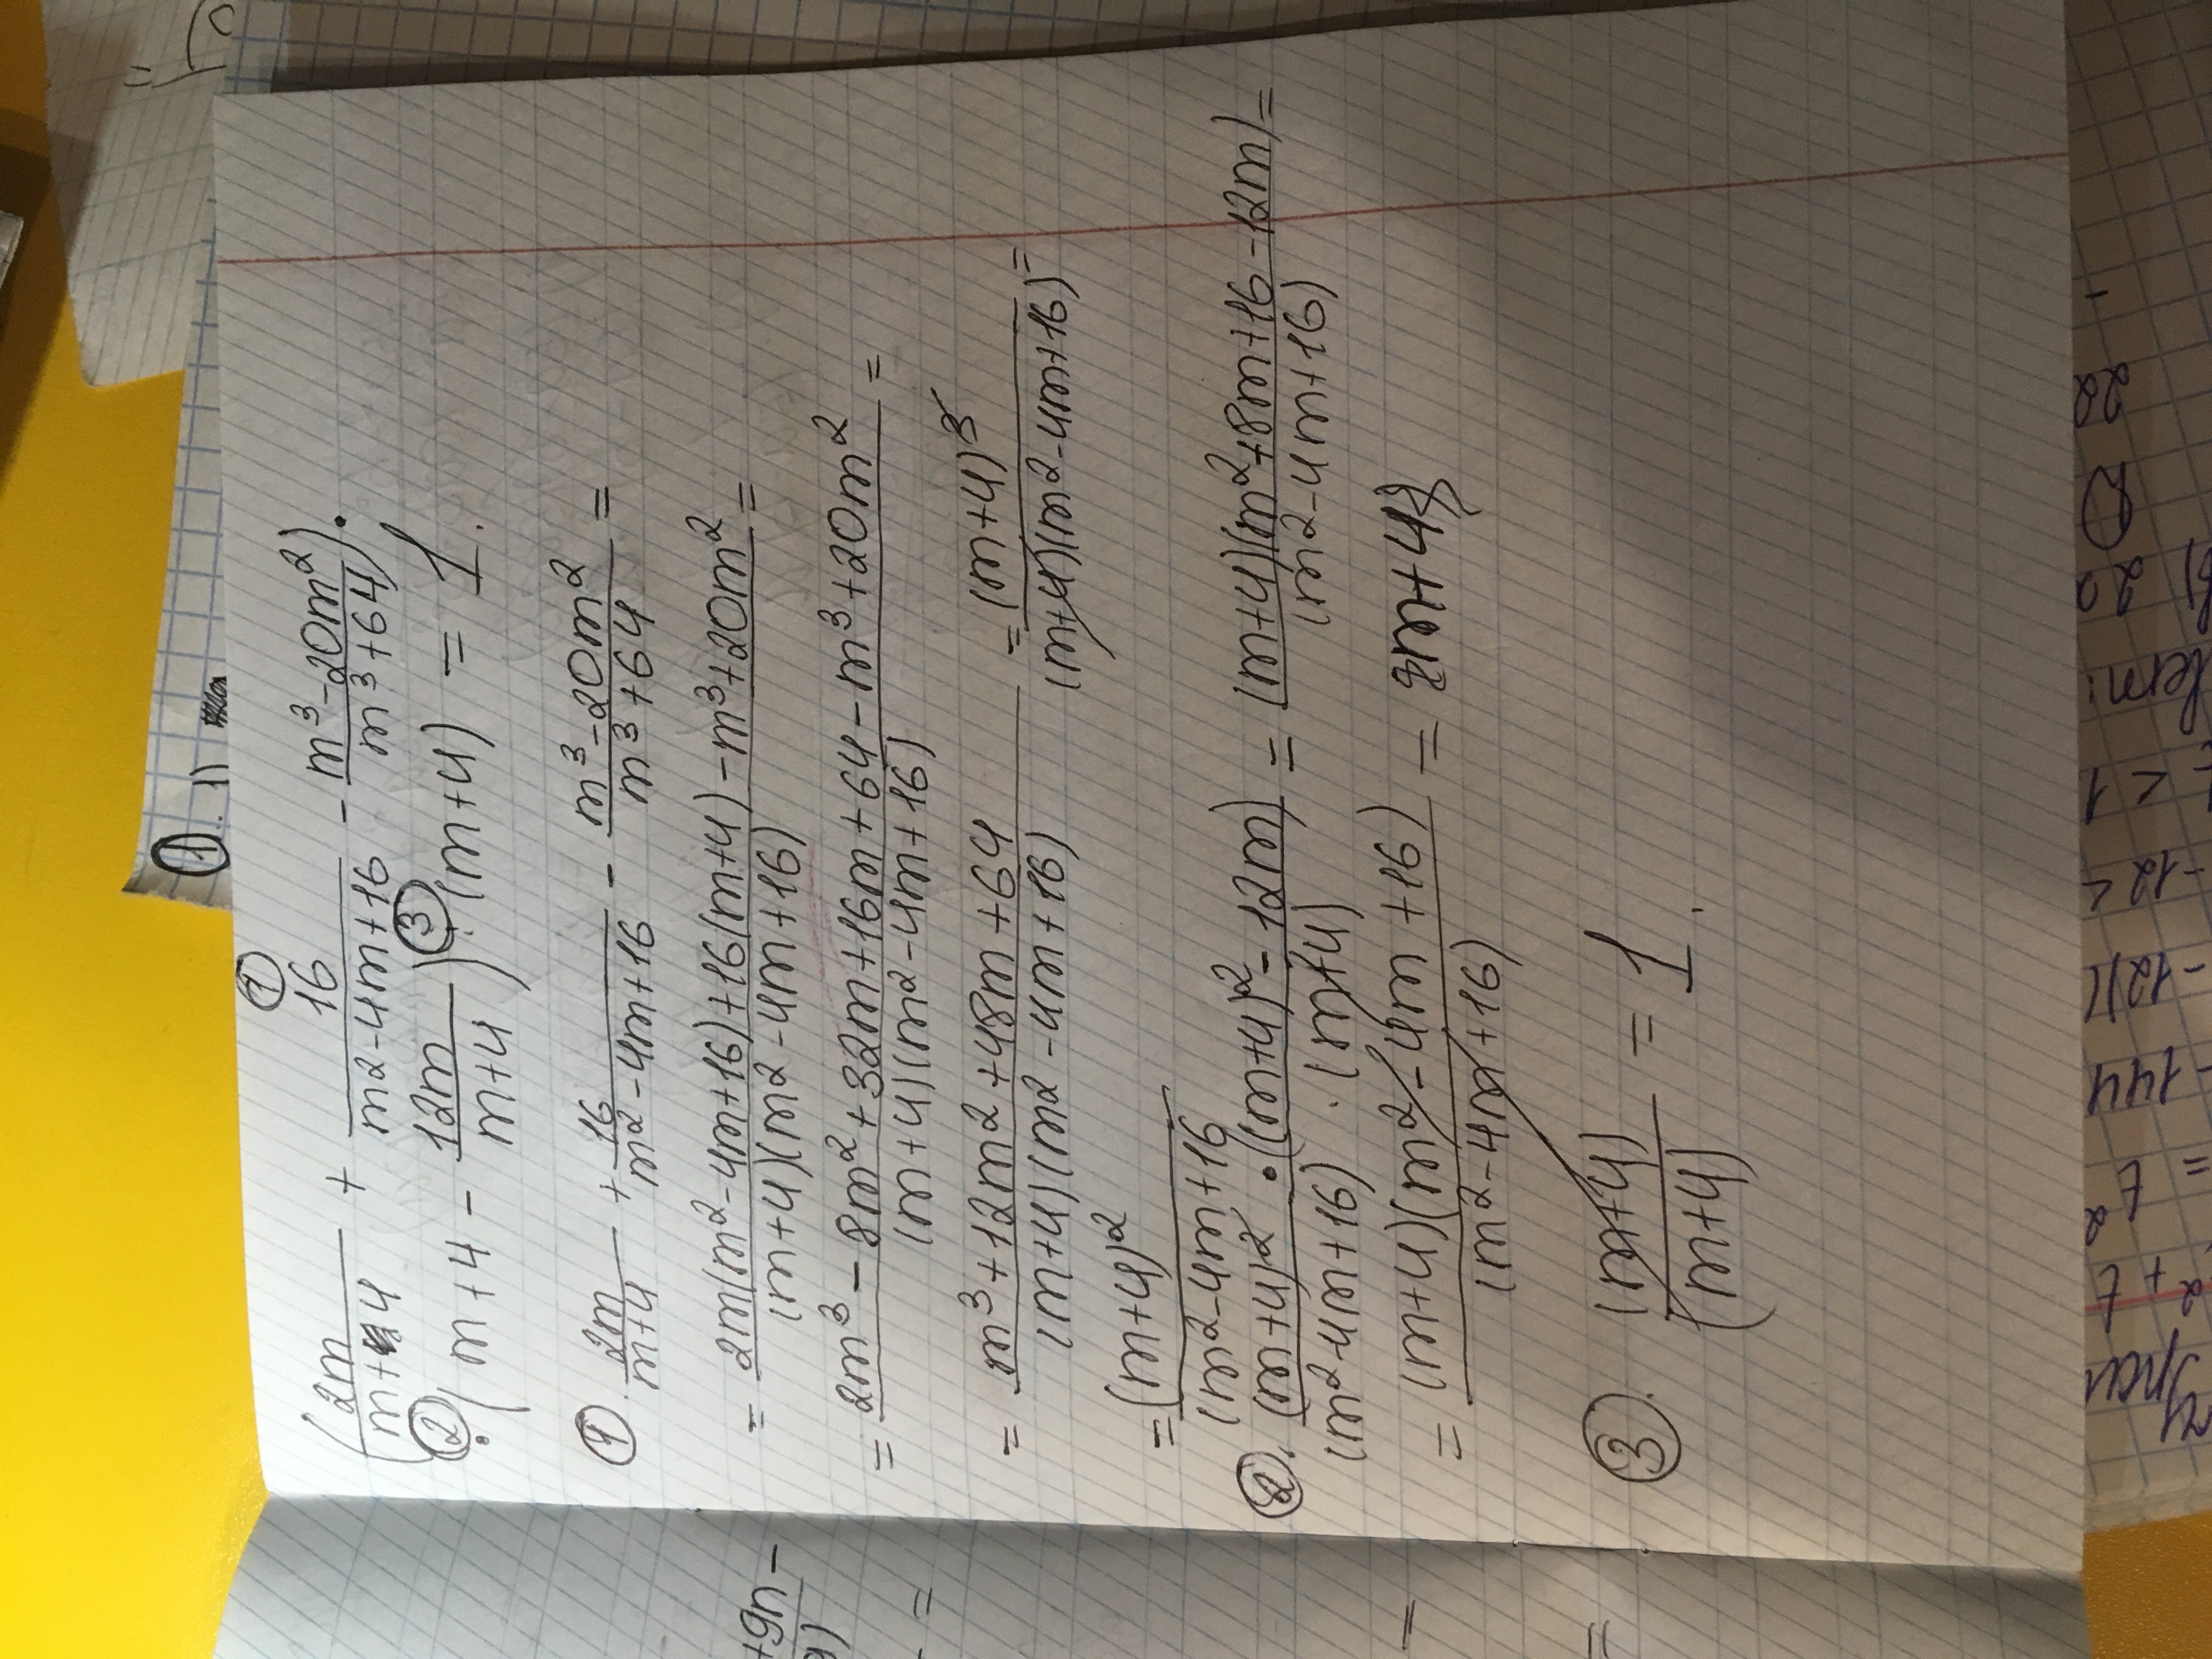 ① 1)
①
(2m/(m+4) + 16/(m²-4m+16) - (m³-20m²)/(m³+64)) ·
② · (m+4 - 12m/(m+4)) ③ : (m+4) = 1.
① 2m/(m+4) + 16/(m²-4m+16) - (m³-20m²)/(m³+64) =
= (2m(m²-4m+16)+16(m+4)-m³+20m²)/((m+4)(m²-4m+16)) =
= (2m³-8m²+32m+16m+64-m³+20m²)/((m+4)(m²-4m+16)) =
= (m³+12m²+48m+64)/((m+4)(m²-4m+16)) = (m+4)³/((m+4)(m²-4m+16)) =
= (m+4)²/(m²-4m+16
②. (m+4)² · ((m+4)²-12m)/((m²-4m+16) · (m+4)) = (m+4)(m²+8m+16-12m)/(m²-4m+16) =
= (m+4)(m²-4m+16)/(m²-4m+16) = m+4
③. (m+4)/(m+4) = 1.
+9n-
=
-144
-12
< 1
22
20